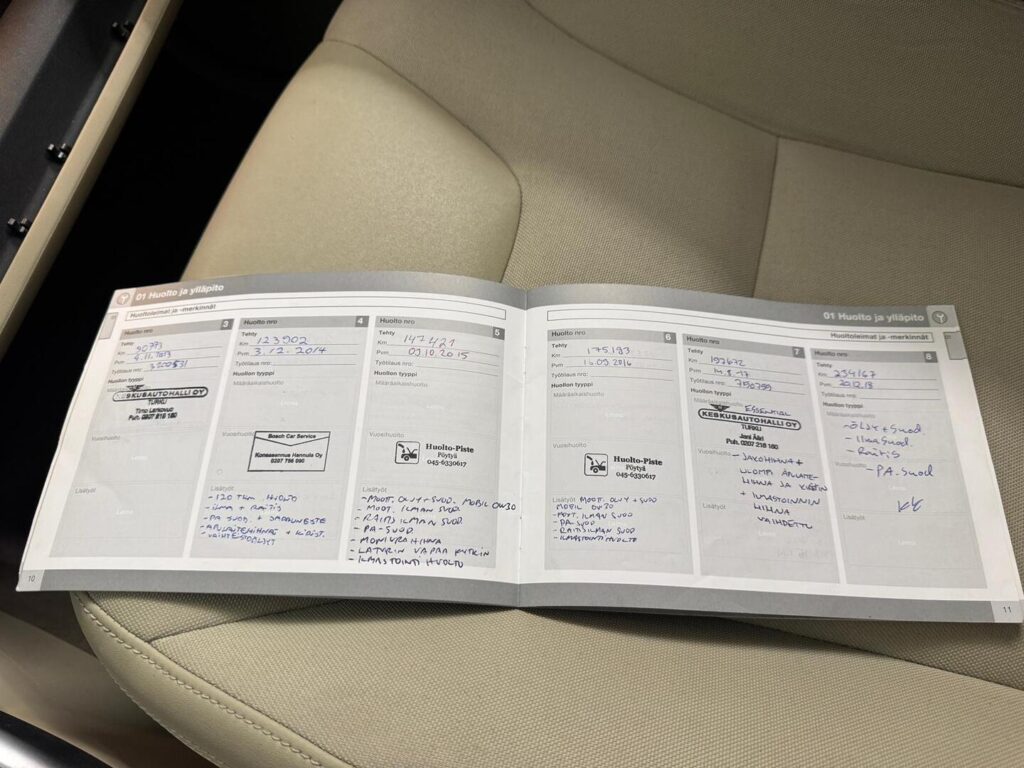 01 Huolto ja ylläpito
Huoltoleimat ja -merkinnät
Huolto nro 3
Tehty
Km 90773
Pvm 9.11.2013
Työtilaus nro:
Huollon tyyppi
KESKUSAUTOHALLI OY
TURKU
Timo
Puh. 0207 218 160
Vuosihuolto
Lisätyöt
Leima
10
Huolto nro 4
Tehty
Km 123902
Pvm 3.12.2014
Työtilaus nro:
Huollon tyyppi
Määräaikaishuolto
Leima
Vuosihuolto
Bosch Car Service
Koneasennus Hannula Oy
0207 756 090
Lisätyöt
-120 TKM HUOLTO
-ILMA + RAITIS
-PA SUOD. + JARRUNESTE
-APULAITEHIHNAT + KIRIST.
-VAIHTEISTOÖLJYT
Huolto nro 5
Tehty
Km 147421
Pvm 09.10.2015
Työtilaus nro:
Huollon tyyppi
Määräaikaishuolto
Leima
Vuosihuolto
Huolto-Piste
Pöytyä
045-6330617
Lisätyöt
-MOOT. ÖLJY + SUOD. MOBIL 0W30
-MOOT. ILMAN SUOD.
-RAITIS ILMAN SUOD.
-PA-SUOD.
-MONIURAHIHNA
-LATURIN VAPAA KYTKIN
-ILMASTOINTI HUOLTO
01 Huolto ja ylläpito
Huoltoleimat ja -merkinnät
Huolto nro 6
Tehty
Km 175193
Pvm 16.09.2016
Työtilaus nro:
Huollon tyyppi
Määräaikaishuolto
Leima
Vuosihuolto
Huolto-Piste
Pöytyä
045-6330617
Lisätyöt MOOT. ÖLJY + SUOD
MOBIL 0W30
-MOOT. ILMAN SUOD
-PA-SUOD
-RAITIS ILMAN SUOD
-ILMASTOINTI HUOLTO
Huolto nro 7
Tehty
Km 192672
Pvm
Työtilaus nro: 750759
Huollon tyyppi
Määräaikaishuolto ESSENTIAL
KESKUSAUTOHALLI OY
TURKU
Jani Ääri
Puh. 0207 218 160
Vuosihuolto
- JAKOHIHNA +
ULOMPI APULAITE-
HIHNA JA KIRISTIN
+ ILMASTOINNIN
HIHNA
VAIHDETTU
Lisätyöt
Huolto nro 8
Tehty
Km 234167
Pvm 20.12.18
Työtilaus nro:
Huollon tyyppi
Määräaikaishuolto
-Öljy + Suod
- Ilma Suod
- Raitis
Vuosihuolto
- PA. Suod
Lisätyöt
Leima
11